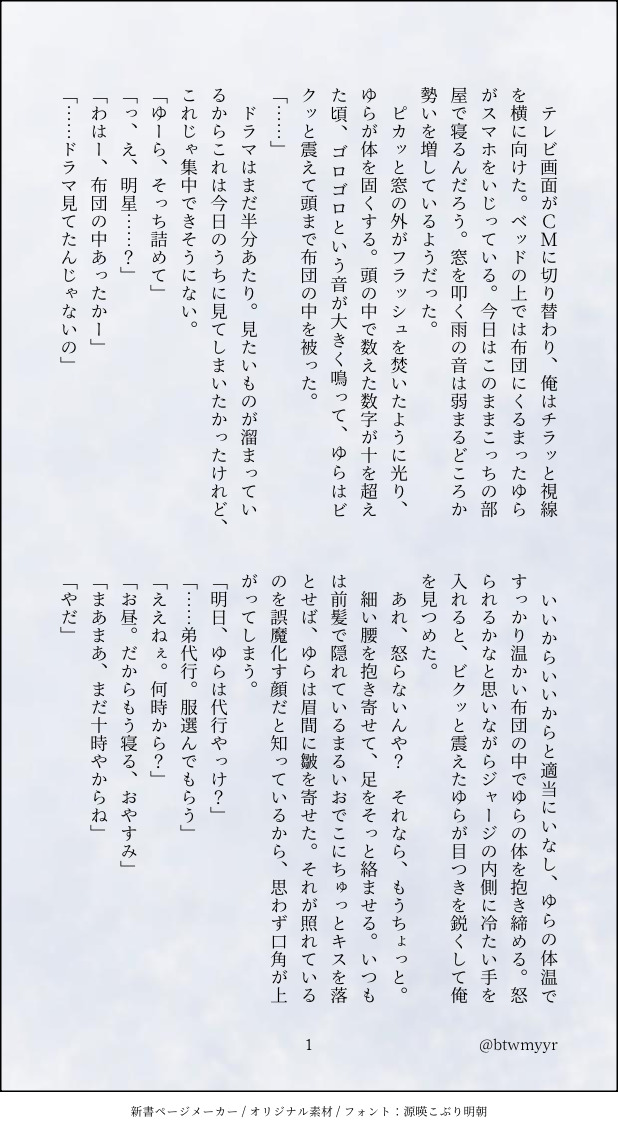 テレビ画面がCMに切り替わり、俺はチラッと視線
を横に向けた。ベッドの上では布団にくるまったゆら
がスマホをいじっている。今日はこのままこっちの部
屋で寝るんだろう。窓を叩く雨の音は弱まるどころか
勢いを増しているようだった。
ピカッと窓の外がフラッシュを焚いたように光り、
ゆらが体を固くする。頭の中で数えた数字が十を超え
た頃、ゴロゴロという音が大きく鳴って、ゆらはビ
クッと震えて頭まで布団の中を被った。
「……」
ドラマはまだ半分あたり。見たいものが溜まってい
るからこれは今日のうちに見てしまいたかったけれど、
これじゃ集中できそうにない。
「ゆーら、そっち詰めて」
「っ、え、明星……？」
「わはー、布団の中あったかー」
「……ドラマ見てたんじゃないの」
いいからいいからと適当にいなし、ゆらの体温で
すっかり温かい布団の中でゆらの体を抱き締める。怒
られるかなと思いながらジャージの内側に冷たい手を
入れると、ビクッと震えたゆらが目つきを鋭くして俺
を見つめた。
あれ、怒らないんや？　それなら、もうちょっと。
細い腰を抱き寄せて、足をそっと絡ませる。いつも
は前髪で隠れているまるいおでこにちゅっとキスを落
とせば、ゆらは眉間に皺を寄せた。それが照れている
のを誤魔化す顔だと知っているから、思わず口角が上
がってしまう。
「明日、ゆらは代行やっけ？」
「……弟代行。服選んでもらう」
「ええねぇ。何時から？」
「お昼。だからもう寝る、おやすみ」
「まあまあ、まだ十時やからね」
「やだ」
1
@btwmyyr
新書ページメーカー / オリジナル素材 / フォント：源暎こぶり明朝